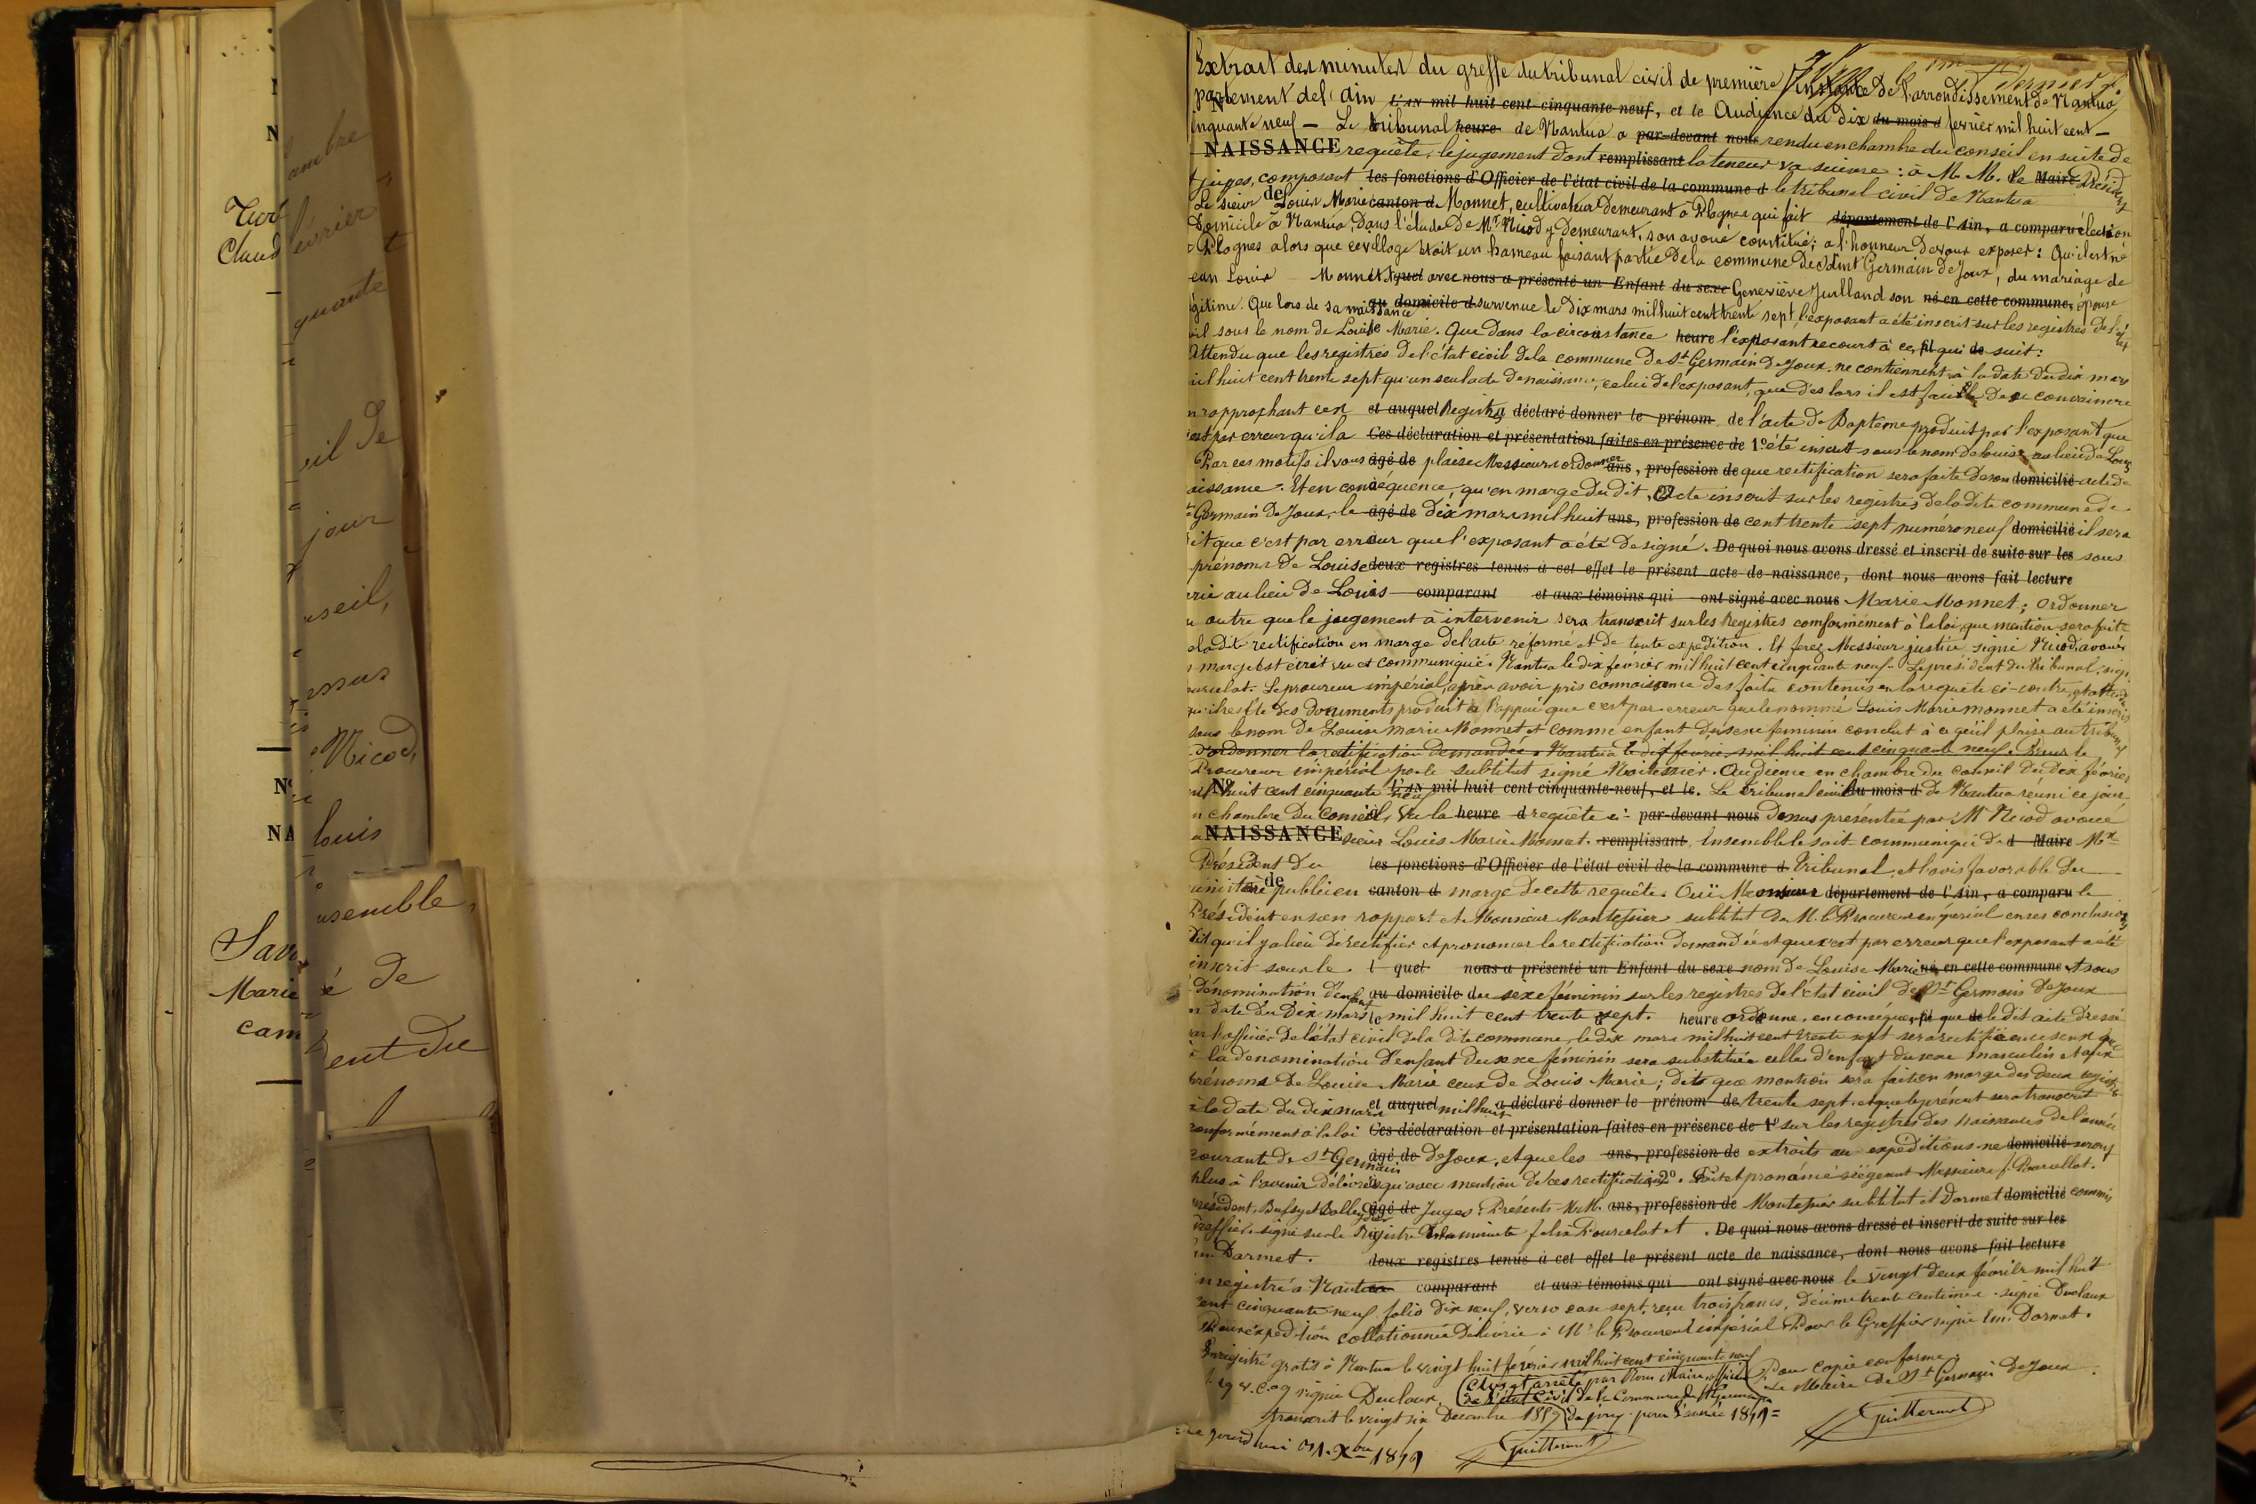 N
N
Claud
N
NA
Marie
cam
ambre
évrier
quante
eil de
jour
nseil,
essus
Nicod,
louis
nsemble,
é de
ent du
Extrait des minutes du greffe du tribunal civil de première instance de l'arrondissement de Nantua
partement de l'ain L'an mil huit cent cinquante-neuf, et le Audience du dix du mois d fevrier mil huit cent —
inquante neuf — Le tribunal heure de Nantua a par-devant nous rendu en chambre du conseil en suite de
NAISSANCE requête, le jugement dont remplissant la teneur va suivre : à M. M. le Maire Présid
juges, composant les fonctions d'Officier de l'état civil de la commune d le tribunal civil de Nantua
Le sieur de Louis Marie canton d Monnet, cultivateur demeurant à Plagnes qui fait département de l'Ain, a comparu élection
Domicile à Nantua, dans l'étude de Mr Nicod y demeurant, son avoué constitué ; a l'honneur de vous exposer : Qu'il est né
Plagnes alors que ce village était un hameau faisant partie de la commune de Saint Germain de Joux, du mariage de
ean Louis Monnet lequel avec nous a présenté un Enfant du sexe Geneviève Juilland son né en cette commune, épouse
égitime. Que lors de sa naissance au domicile d survenue le dix mars mil huit cent trente sept, l'exposant a été inscrit sur les registres de l'ét
vil sous le nom de Louise Marie. Que dans la circonstance heure l'exposant recourt à ce fil qui de suit :
Attendu que les registres de l'état civil de la commune de St Germain de Joux, ne contiennent à la date du dix mars
mil huit cent trente sept qu'un seul acte de naissance, celui de l'exposant, que dès lors il est facile de se convaincre
n rapprochant ces et auquel Registres a déclaré donner le prénom de l'acte de Baptême produit par l'exposant que
est par erreur qu'il a Ces déclaration et présentation faites en présence de 1º été inscrit sous le nom de Louise au lieu de Louis
Par ces motifs il vous âgé de plaise Messieurs ordonner ans, profession de que rectification sera faite de son domicilié acte de
aissance. Et en conséquence, qu'en marge du dit, acte inscrit sur les registres de la dite commune de
t Germain de Joux, le âgé de dix mars mil huit ans, profession de cent trente sept numéro neuf domicilié il sera
it que c'est par erreur que l'exposant a été designé. De quoi nous avons dressé et inscrit de suite sur les sous
prénoms de Louise deux registres tenus à cet effet le présent acte de naissance, dont nous avons fait lecture
rie au lieu de Louis comparant et aux témoins qui ont signé avec nous Marie Monnet ; ordonner
n outre que le jugement à intervenir sera transcrit sur les Registres conformément à la loi, que mention sera faite
e la dite rectification en marge de l'acte réformé et de toute expédition. Et ferez Messieurs justice signé Nicod, avoué
n marge est écrit vu et communiqué. Nantua le dix février mil huit cent cinquante neuf. Le président du tribunal, signé
ourcelot. Le procureur impérial, après avoir pris connaissance des faits contenus en la requête ci-contre, et attendu
qu'il résulte des documents produit à l'appui que c'est par erreur que le nommé Louis Marie Monnet a été inscris
sous le nom de Louise Marie Monnet et comme enfant du sexe feminin conclut à ce qu'il plaise au tribunal
d'ordonner la rectification demandée. Nantua le dix fevrier mil huit cent cinquante neuf. Pour le
Procureur impérial par le substitut signé Montessier. Audience en chambre du conseil du dix février
Nº mil huit cent cinquante neuf L'an mil huit cent cinquante-neuf, et le. Le tribunal civil du mois d de Nantua réuni ce jour
n chambre du Conseil, Vu la heure d requête ci- par-devant nous dessus présentée par Mr Nicod avoué
NAISSANCE sieur Louis Marie Monnet. remplissant Ensemble le soit-communiqué de d Maire Mr
Président du les fonctions d'Officier de l'état civil de la commune d Tribunal, et l'avis favorable du
ministère de public en canton d marge de cette requête. Ouï Monsieur département de l'Ain, a comparu le
Président en son rapport et Monsieur Montessier subtitut de M. le Procureur impérial en ses conclusions
Dit qu'il y a lieu de rectifier et prononcer la rectification demandée et que c'est par erreur que l'exposant a été
inscrit sous le l quel nous a présenté un Enfant du sexe nom de Louise Marie né, en cette commune et sous
dénomination d'enfant au domicile du sexe féminin sur les registres de l'état civil de St Germain de Joux
n date du dix mars le mil huit cent trente sept. heure ordonne, en conséquence, fil que de le dit acte dressé
par l'officier de l'état civil de la dite commune, le dix mars mil huit cent trente sept sera rectifié en ce sens que
à la dénomination d'enfant du sexe féminin sera substituée celle d'enfant du sexe masculin et aux
prénoms de Louise Marie ceux de Louis Marie ; dit que mention sera faite en marge des deux registres
à la date du dix mars et auquel mil huit a déclaré donner le prénom de trente sept, et que le présent sera transcrit
conformément à la loi Ces déclaration et présentation faites en présence de 1º sur les registres des naissances de l'année
courante de St Germain âgé de de Joux, et que les ans, profession de extraits au expéditions ne domicilié seront
plus à l'avenir délivrés qu'avec mention de ces rectifications 2º. Fait et prononcé siégeant Messieurs f. Pourcellot.
président, Buffy et âgé de Juges. Présents M.M. ans, profession de Montessier subtitut et Darmet domicilié commis
greffier. signé sur le Registre de la minute félix Pourcelot et. De quoi nous avons dressé et inscrit de suite sur les
Darmet. deux registres tenus à cet effet le présent acte de naissance, dont nous avons fait lecture
nregistré à Nantua comparant et aux témoins qui ont signé avec nous le vingt deux février mil huit
cent cinquante neuf folio dix neuf, verso case sept, reçu trois francs, décime trente centimes. signé Duclaux
Pour expédition collationnée délivrée à Mr le Procureur impérial. Pour le Greffier signé Em. Darmet.
Enregistré gratis à Nantua le vingt huit février mil huit cent cinquante neuf
signé Duclaux. Clos et arrêté par Nous Maire, officier Pour copie conforme.
de l'état Civil de la Commune de St Germain Le Maire de St Germain de Joux
transcrit le vingt six Decembre 1859 de Joux pour l'année 1859 =
Guillermet
jourd'hui 31 Xbre 1859 Guillermet